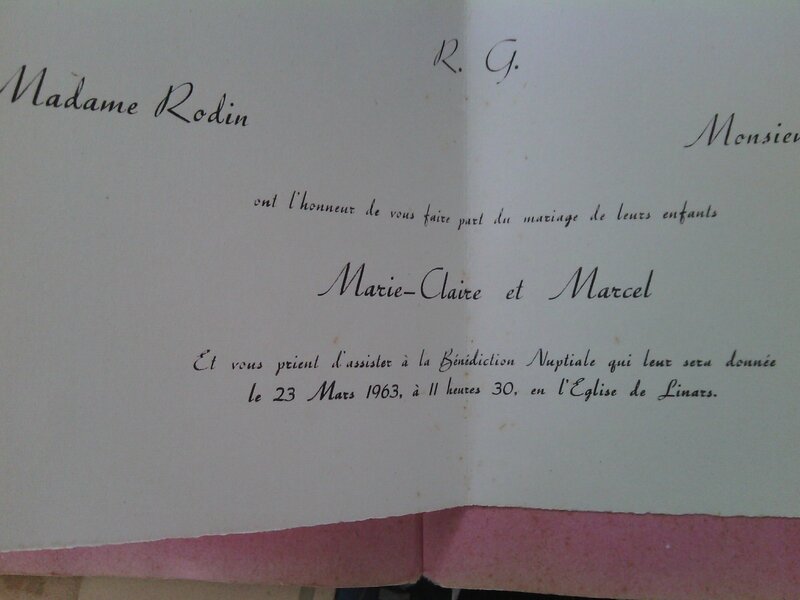 R. G.
Madame Rodin
Monsieu
ont l'honneur de vous faire part du mariage de leurs enfants
Marie-Claire et Marcel
Et vous prient d'assister à la Bénédiction Nuptiale qui leur sera donnée
le 23 Mars 1963, à 11 heures 30, en l'Eglise de Linars.